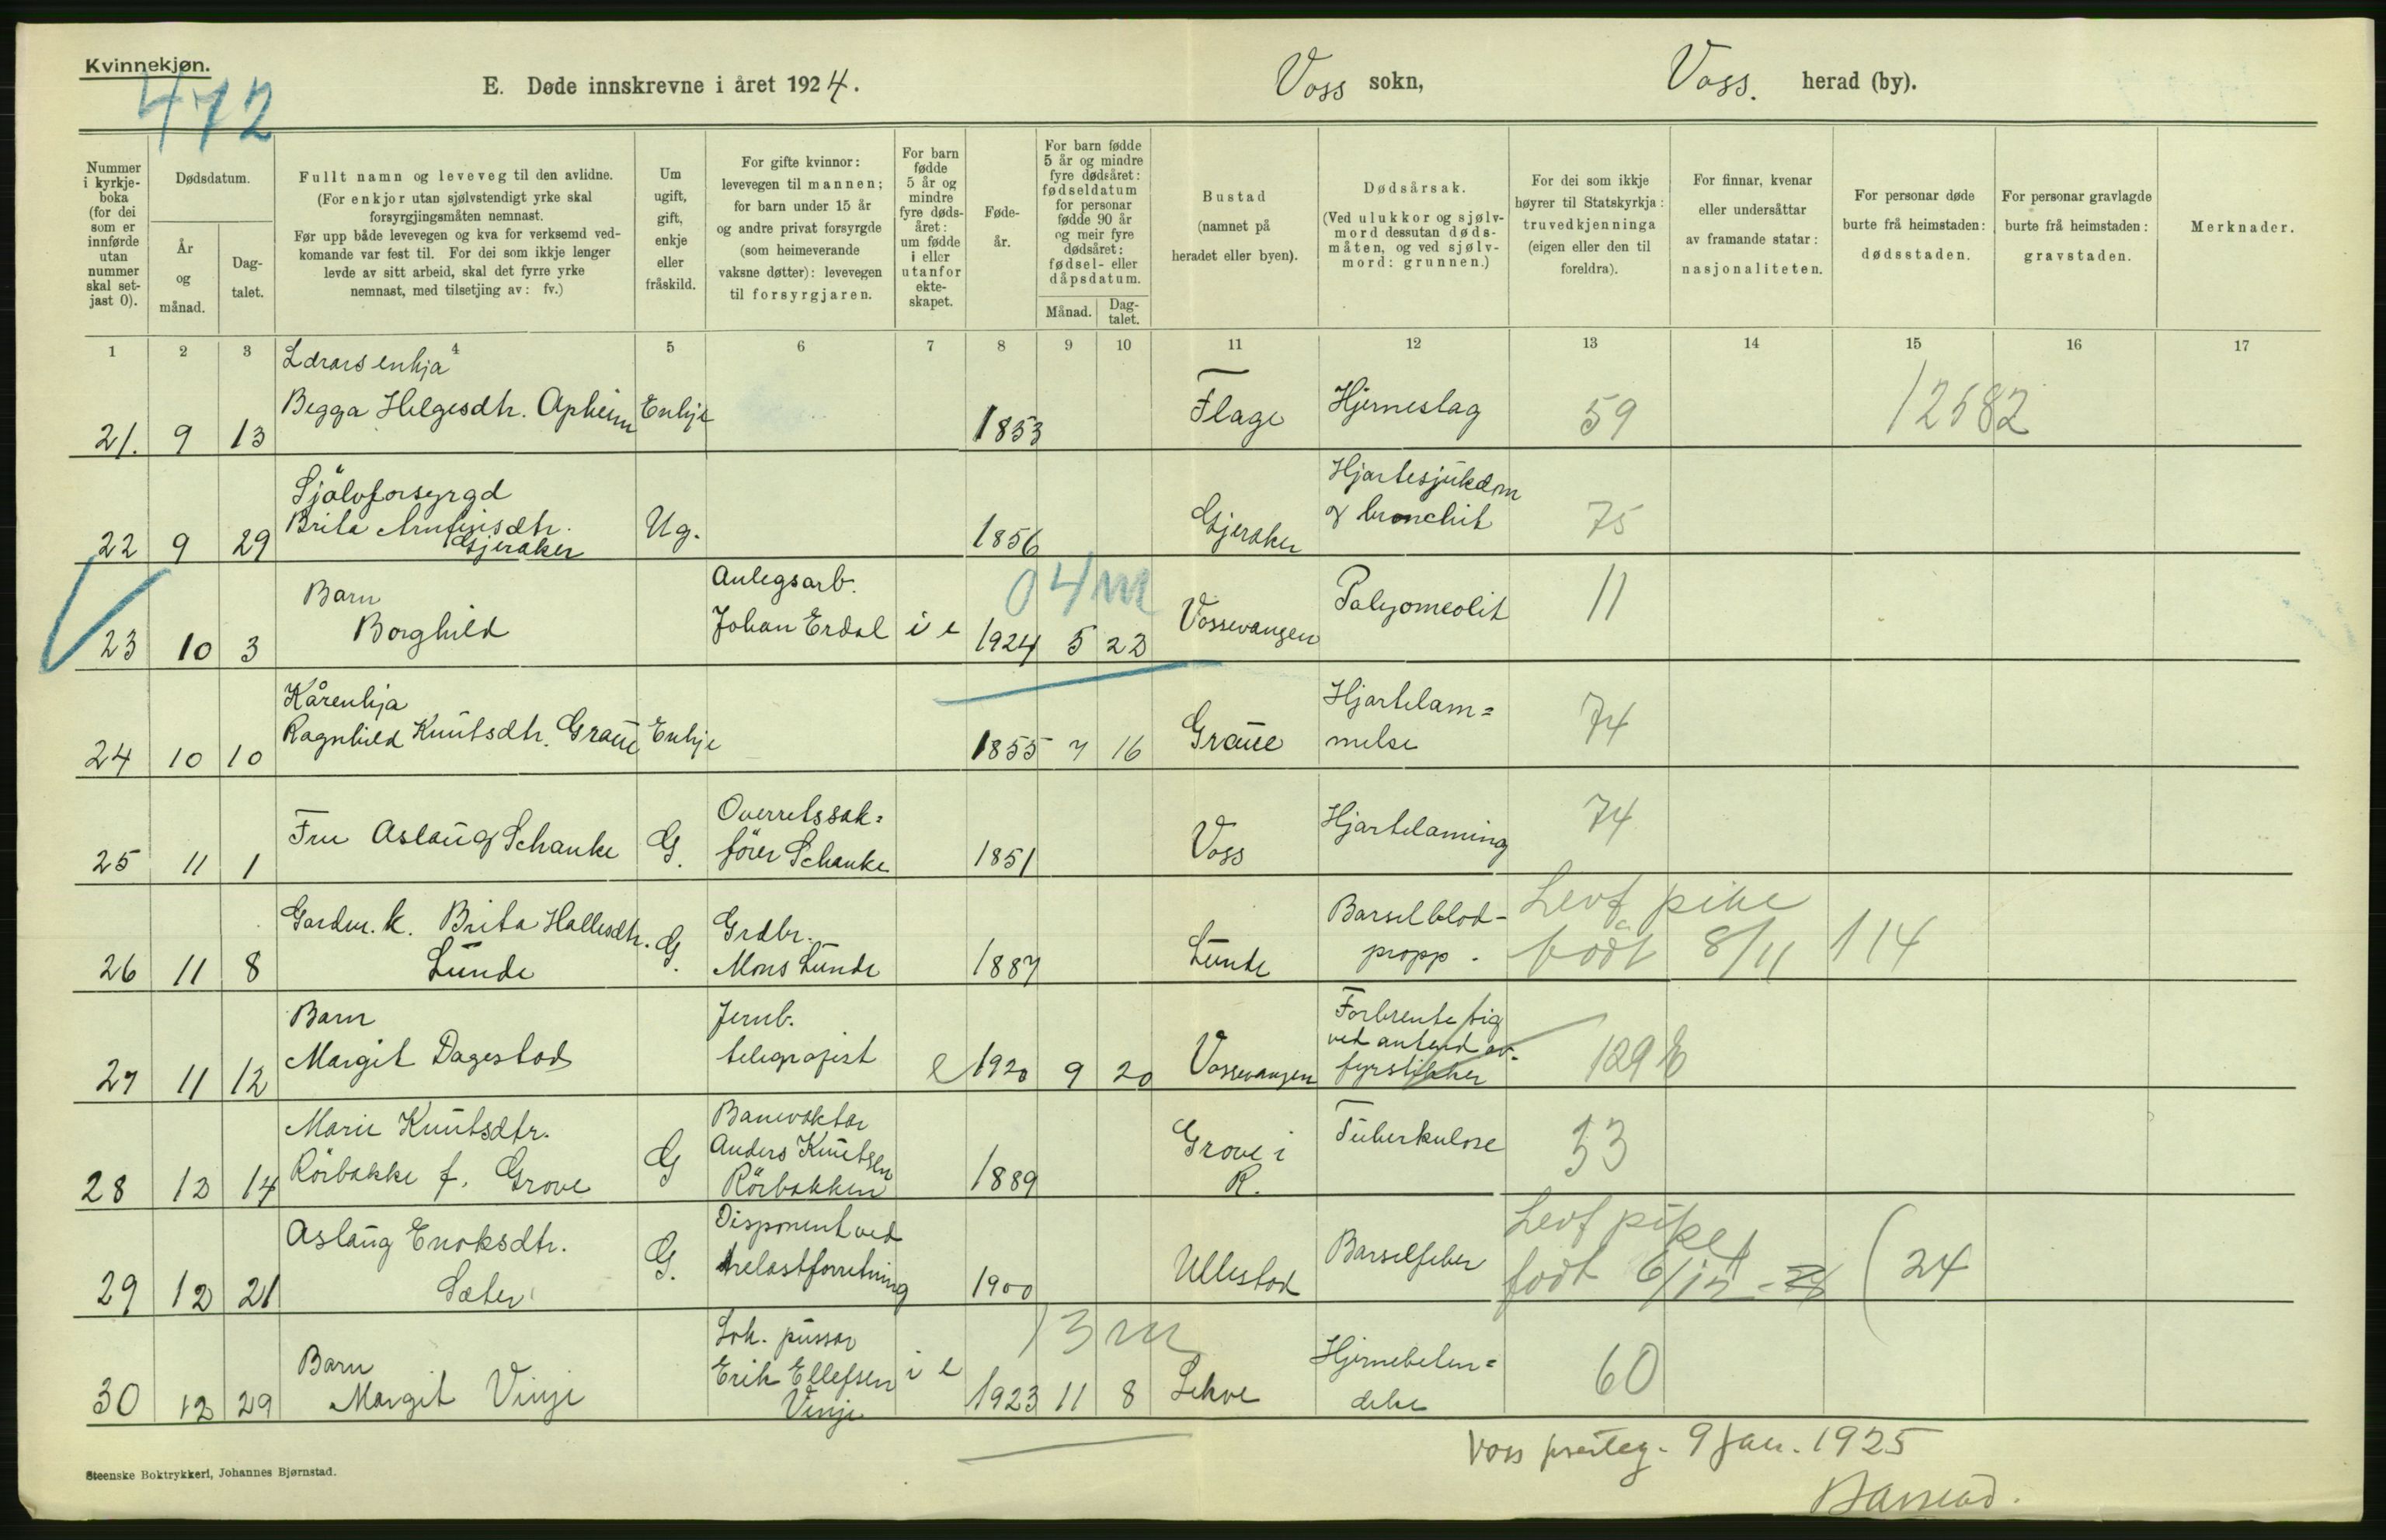 Kvinnekjøn.
472
E. Døde innskrevne i året 1924.
Voss sokn,
Voss. herad (by).
Nummer
i kyrkje-
boka
(for dei
som er
innførde
utan
nummer
skal set-
jast 0).
Dødsdatum.
År
og
månad.
Dag-
talet.
Fullt namn og leveveg til den avlidne.
(For enkjor utan sjølvstendigt yrke skal
forsyrgjingsmåten nemnast.
Før upp både levevegen og kva for verksemd ved-
komande var fest til. For dei som ikkje lenger
levde av sitt arbeid, skal det fyrre yrke
nemnast, med tilsetjing av: fv.)
Um
ugift,
gift,
enkje
eller
fråskild.
For gifte kvinnor:
levevegen til mannen;
for barn under 15 år
og andre privat forsyrgde
(som heimeverande
vaksne døtter): levevegen
til forsyrgjaren.
For barn
fødde
5 år og
mindre
fyre døds-
året:
um fødde
i eller
utanfor
ekte-
skapet.
Føde-
år.
For barn fødde
5 år og mindre
fyre dødsåret:
fødseldatum
for personar
fødde 90 år
og meir fyre
dødsåret:
fødsel- eller
dåpsdatum.
Månad.
Dag-
talet.
Bustad
(namnet på
heradet eller byen).
Dødsårsak.
(Ved ulukkor og sjølv-
mord dessutan døds-
måten, og ved sjølv-
mord: grunnen.)
For dei som ikkje
høyrer til Statskyrkja:
truvedkjenninga
(eigen eller den til
foreldra).
For finnar, kvenar
eller undersåttar
av framande statar:
nasjonaliteten.
For personar døde
burte frå heimstaden:
dødsstaden.
For personar gravlagde
burte frå heimstaden:
gravstaden.
Merknader.
1 2 3 4 5 6 7 8 9 10 11 12 13 14 15 16 17
Lærarsenkja
21. 9 13 Begga Helgesdtr. Apheim Enkje 1853 Flage Hjerneslag 59 12582
Sjölvforsyrgd Hjartesjukdom
Brita Arnfinsdtr. Ug. & bronchit 75
22 9 29 Gjeraker 1856 Gjeraker
Barn Anlegsarb. 0 4 m
Borghild Johan Erdal i e Vossevangen Polyomeolit 11
23 10 3 1924 5 23
Kårenkja Hjartelam=
24 10 10 Ragnhild Knutsdtr. Graue Enkje 1855 7 16 Graue melse 74
Overretssak=
25 11 1 Fru Aslaug Schanke G. förer Schanke 1851 Voss Hjartelaming 74
Gardm. k. Brita Hallesdtr. G. Grdbr. Barselblod- Levf pike
26 11 8 Lunde Mons Lunde 1887 Lunde propp. födt 8/11 114
Barn Jernb. Forbrente sig
Margit Dagestad telegrafist ved antend av
27 11 12 e 1920 9 20 Vossevangen fyrstikker 129 b
Marie Knutsdtr. Banevaktar
Rörbakke f. Grove G Anders Knutsen Grove i Tuberkulose 33
28 12 14 Rörbakken 1889 R.
Aslaug Enoksdtr. G. Disponent ved Barselfeber Levf pike
29 12 21 Sæter trelastforretning 1900 Ullestad födt 6/12 24
Lok. pussar 13 m
Barn Erik Ellefsen i e Hjernebeten=
30 12 29 Margit Vinje Vinje 1923 11 8 Lekve delse 60
Voss presteg. 9 Jan. 1925
Steenske Boktrykkeri, Johannes Bjørnstad.